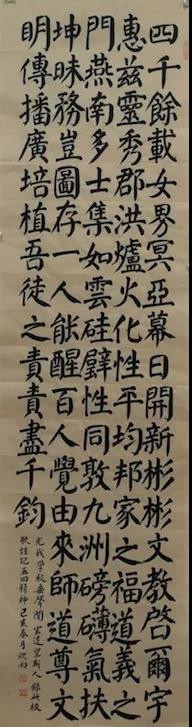 四千餘載女界冥亞幕日開新彬彬文教啓爾宇
惠茲靈秀郡洪爐火化性平均邦家之福道義之
門燕南多士集如雲硅璧性同敦九洲磅礴氣扶
坤昧務豈圖存一人能醒百人覺由來師道尊文
明傳播廣培植吾徒之責責盡千鈞
光我学校無聲聞宏達望斯人錄此校
歌惟記五四精神己亥春月